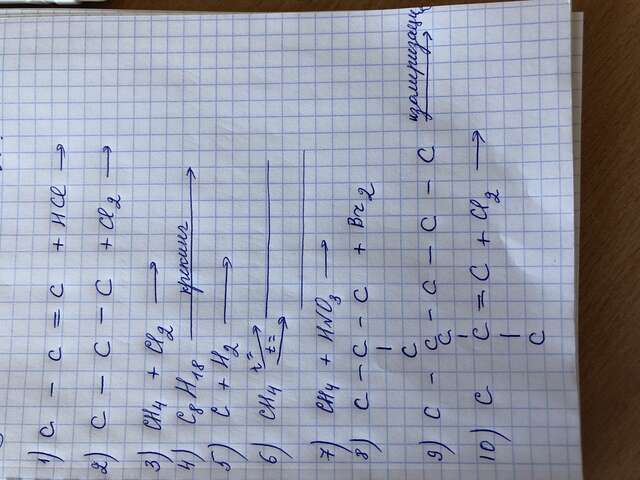 1) C – C = C + HCl →
2) C – C – C + Cl2 →
3) CH4 + Cl2 →
4) C8H18 крекинг →
5) C + H2 →
6) CH4 t= → ______
t= → ______
7) CH4 + HNO3 →
8) C – C – C + Br2
|
C
9) C – C – C – C – C изомеризация →
C
|
10) C C = C + Cl2 →
|
C